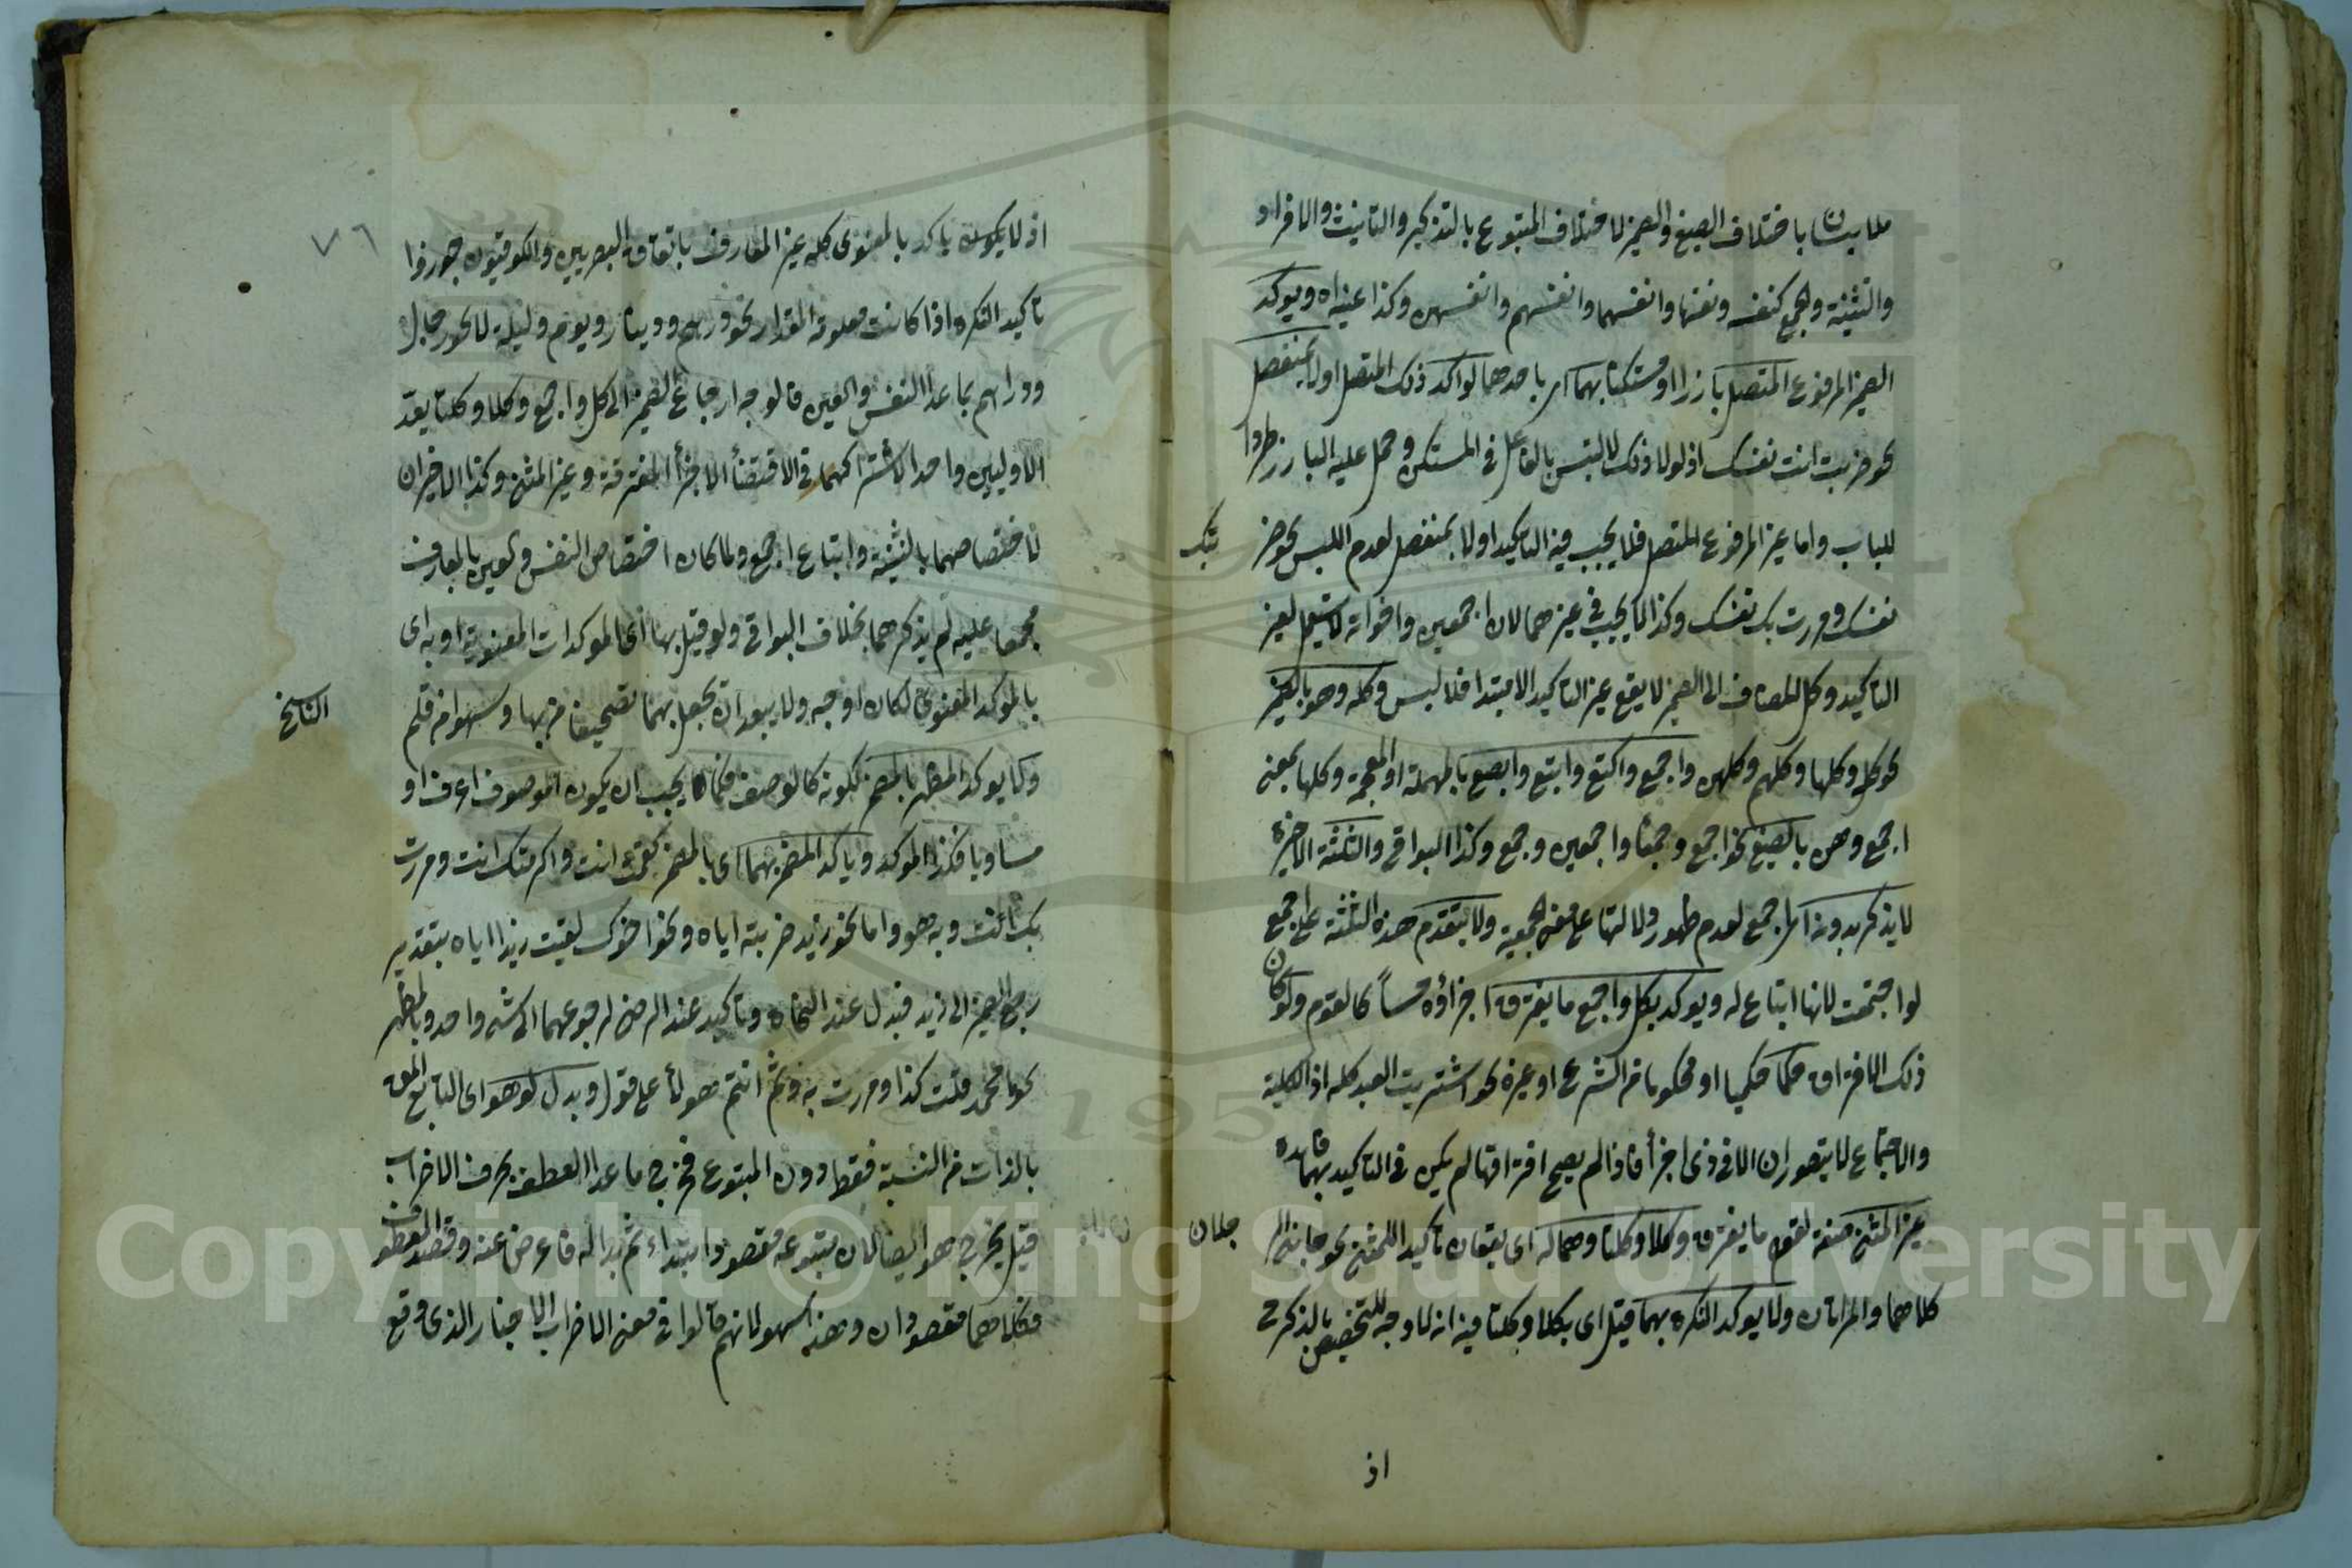 ملابسان باختلاف الصيغ والضمير لاختلاف المتبوع بالتذكير والتانيث والافراد
والتثنية والجمع كنفسه ونفسها وانفسهما وانفسهم وانفسهن وكذا عيناه ويوكد
الضمير المرفوع المتصل بارزا او مستكنا بهما اى باحدهما لو اكد ذلك المتصل اولا بمنفصل
نحو ضربت انت نفسك اذ لولا ذلك لالتبس بالفاعل فى المستكن وحمل عليه البارز طردا
للباب واما غير المرفوع المتصل فلا يجب فيه التاكيد اولا بمنفصل لعدم اللبس نحو ضر
بتك
نفسك ومررت بك نفسك وكذا لا يجب فى غيرهما لان اجمعين واخواته لا تستعمل لغير
التاكيد وكل المضاف الى الضمير لا يقع غير التاكيد الا مبتدا فلا لبس وكله وهو بالضمير
نحو كله وكلها وكلهم وكلهن واجمع واكتع وابتع وابصع بالمهملة او المعجمة وكلها بمعنى
اجمع وهن بالصيغ نحو اجمع وجمعا واجمعين وجمع وكذا البواقى والثلثة الاخيرة
لا يذكر بدونه اى اجمع لعدم ظهور دلالتها على معنى الجمعية ولا يتقدم هذه الثلثة على اجمع
لو اجتمعت لانها اتباع له ويوكد بكل واجمع ما يفترق اجزاؤه حسا كالقوم ولو كان
ذلك الافتراق حكما حكميا او محكوما من الشرع او غيره نحو اشتريت العبد كله اذ الكلية
والاجتماع لا يتصوران الا فى ذى اجزأ فاذا لم يصح افتراقها لم يكن فى التاكيد بهما فايدة
غير المثنى صفة لقوله ما يفترق وكلا وكلتا وهما له اى يقعان تاكيدا للمثنى نحو جائنى الر
جلان
كلاهما والمراتان ولا يوكد النكره بهما قيل اى بكلا وكلتا فيه انه لا وجه للتخصيص بالذكر ح
اذ
٧٦
اذ لا يكون يأكد بالمعنوى كله غير المعارف باتفاق البصريين والكوفيون جوزوا
تاكيد النكره اذا كانت معلومة المقدار نحو درهم ودينار ويوم وليلة لا نحو رجال
ودراهم بما عدا النفس والعين فالوجه ارجاع الضمير الى كل واجمع وكلا وكلتا يعد
الاوليين واحدا لاشتراكهما فى الاقتضأ الاجزأ المفترقة وغير المثنى وكذا الاخيران
لاختصاصهما بالتثنية واتباع اجمع ولما كان اختصاص النفس والعين بالمعارف
مجمعا عليه لم يذكرهما بخلاف البواقى ولو قيل بها اى المؤكدات المعنوية او به اى
بالمؤكد المعنوى لكان اوجه ولا يبعد ان يجعل بهما تصحيفا من بها وسهوا من قلم
الناسخ
ولا يوكد المظهر بالمضمر لكونه كالوصف فكما يجب ان يكون الموصوف اعرف او
مساويا فكذا الموكد ويأكد المضمر بهما اى بالمضمر كقمت انت واكرمتك انت ومررت
بك انت وبه هو واما نحو زيد ضربته اياه ونحو اخوك لقيت زيدا اياه بتقدير
رجع الضمير الى زيد فبدل عند النحاة وتاكيد عند الرضى لرجوعهما الى شئ واحد وبالمظهر
نحو ما محمد قلت كذا ومررت به وثم انتم هولأ على قول وبدل لو هو اى التابع المق
بالذات من النسبة فقط دون المتبوع فخرج ما عدا العطف بحرف الاضراب
قيل يخرج هو ايضا لان متبوعه مقصود ابتداء ثم بدا له فاعرض عنه وقصد المعطوف
فكلاهما مقصودان وهذا سهو لانهم قالوا فى معنى الاضراب الاخبار الذى وقع